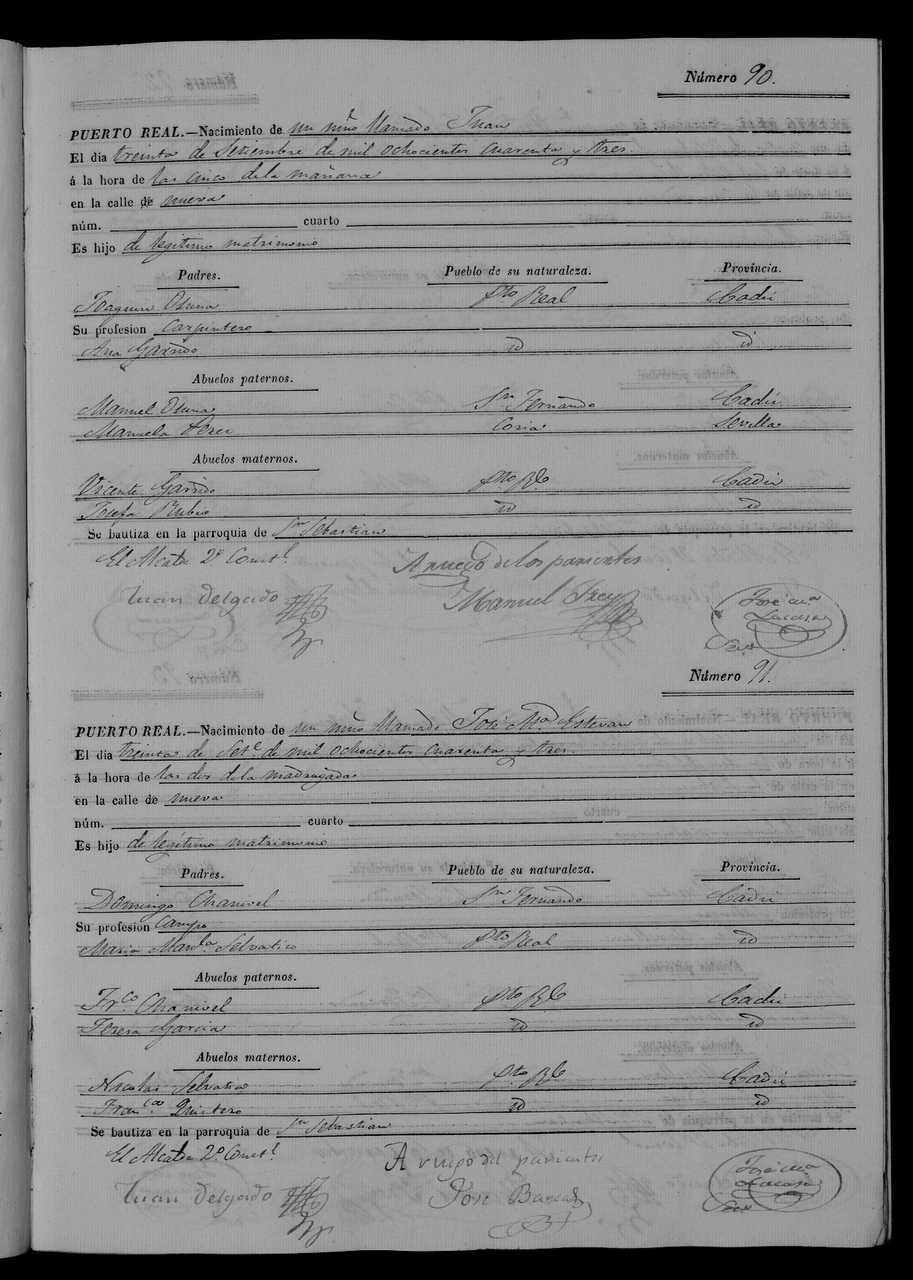 Número 90.
PUERTO REAL.—Nacimiento de un niño llamado Juan
El dia treinta de Setiembre de mil ochocientos cuarenta y tres.
á la hora de las cinco de la mañana
en la calle de nueva
núm. cuarto
Es hijo de legitimo matrimonio
Padres. Pueblo de su naturaleza. Provincia.
Joaquin Osuna Pto Real Cadiz
Su profesion Carpintero
Ana Garrido id id
Abuelos paternos.
Manuel Osuna Sn Fernando Cadiz
Manuela Perez Coria Sevilla
Abuelos maternos.
Vicente Garrido Pto Rl Cadiz
Josefa Rubio id id
Se bautiza en la parroquia de Sn Sebastian
El Alcalde 2º Constl.
A ruego de los parientes
Juan Delgado Manuel José Mª
Srio
Número 91.
PUERTO REAL.—Nacimiento de un niño llamado José Mª Estevan
El dia treinta de Sete. de mil ochocientos cuarenta y tres.
á la hora de las dos de la madrugada
en la calle de nueva
núm. cuarto
Es hijo de legitimo matrimonio
Padres. Pueblo de su naturaleza. Provincia.
Domingo Chanivel Sn Fernando Cadiz
Su profesion Campo
Maria Manla. Selvatico Pto Real id
Abuelos paternos.
Frco. Chanivel Pto Rl Cadiz
Teresa Garcia id id
Abuelos maternos.
Nicolas Selvatico Pto Rl Cadiz
Franca. Quintero id id
Se bautiza en la parroquia de Sn Sebastian
El Alcalde 2º Constl.
A ruego del pariente
Juan Delgado José José Mª
Srio